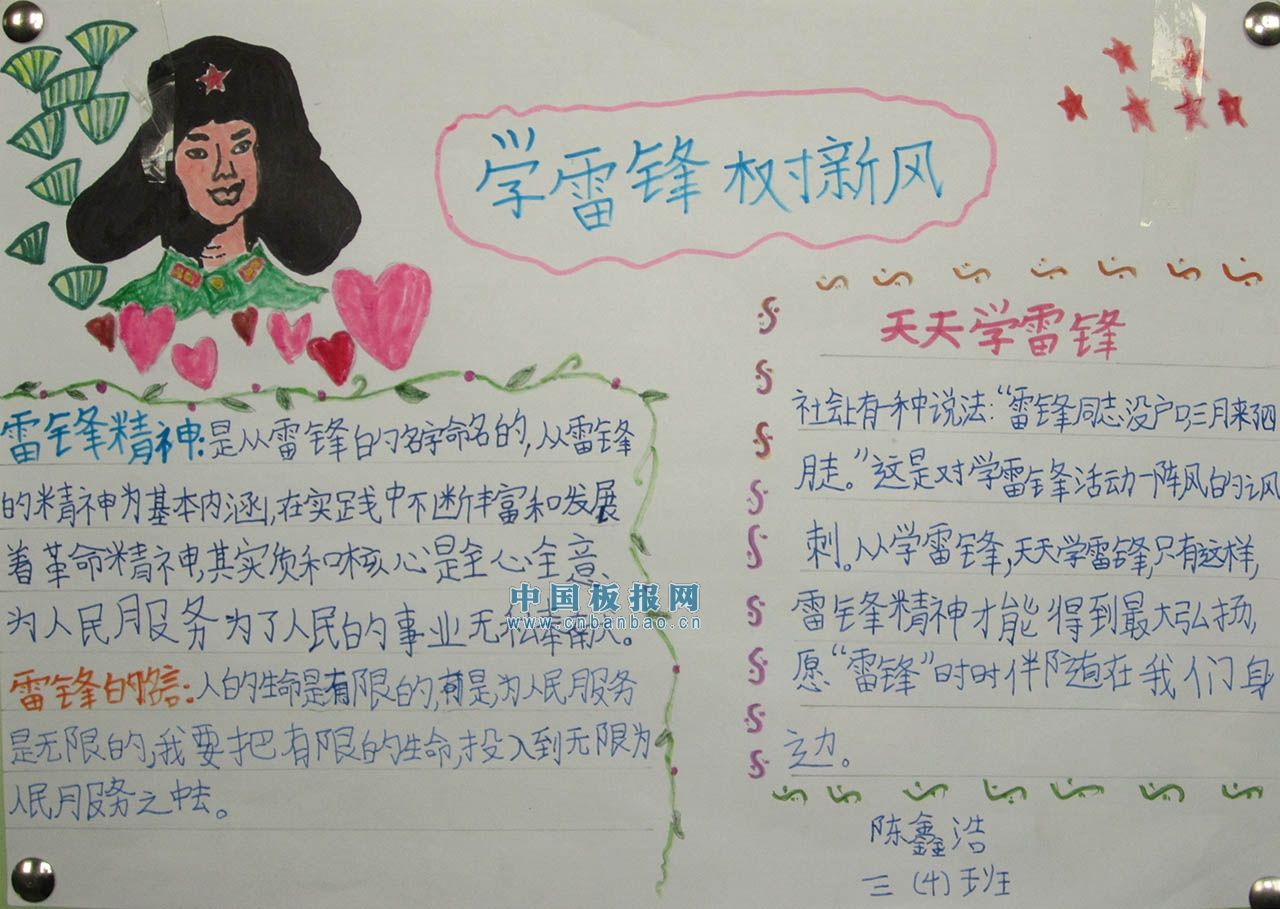 学雷锋 树新风
雷锋精神:是从雷锋的名字命名的,从雷锋
的精神为基本内涵,在实践中不断丰富和发展
着革命精神,其实质和核心是全心全意、
为人民服务为了人民的事业无私奉献。
雷锋的信:人的生命是有限的,有是,为人民服务
是无限的,我要把有限的生命,投入到无限为
人民服务之中去。
中国板报网
www.cnbanbao.cn
天天学雷锋
社会上有一种说法:“雷锋同志没户口,三月来四
月走。”这是对学雷锋活动一阵风的讽
刺。从学雷锋,天天学雷锋,只有这样,
雷锋精神才能得到最大弘扬,
愿“雷锋”时时伴随在我们身
边。
陈鑫浩
三(4)班